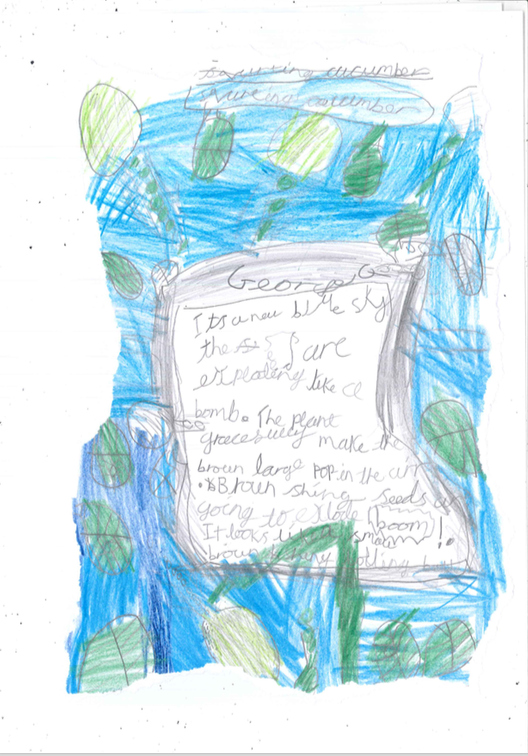 squirting cucumber
squirting cucumber
George G
Its a new blue sky
the are
exploding like a
bomb. The plant
gracefully make the
brown large POP in the air
Brown shiny seeds
going to exlode (boom)!
It looks
brown